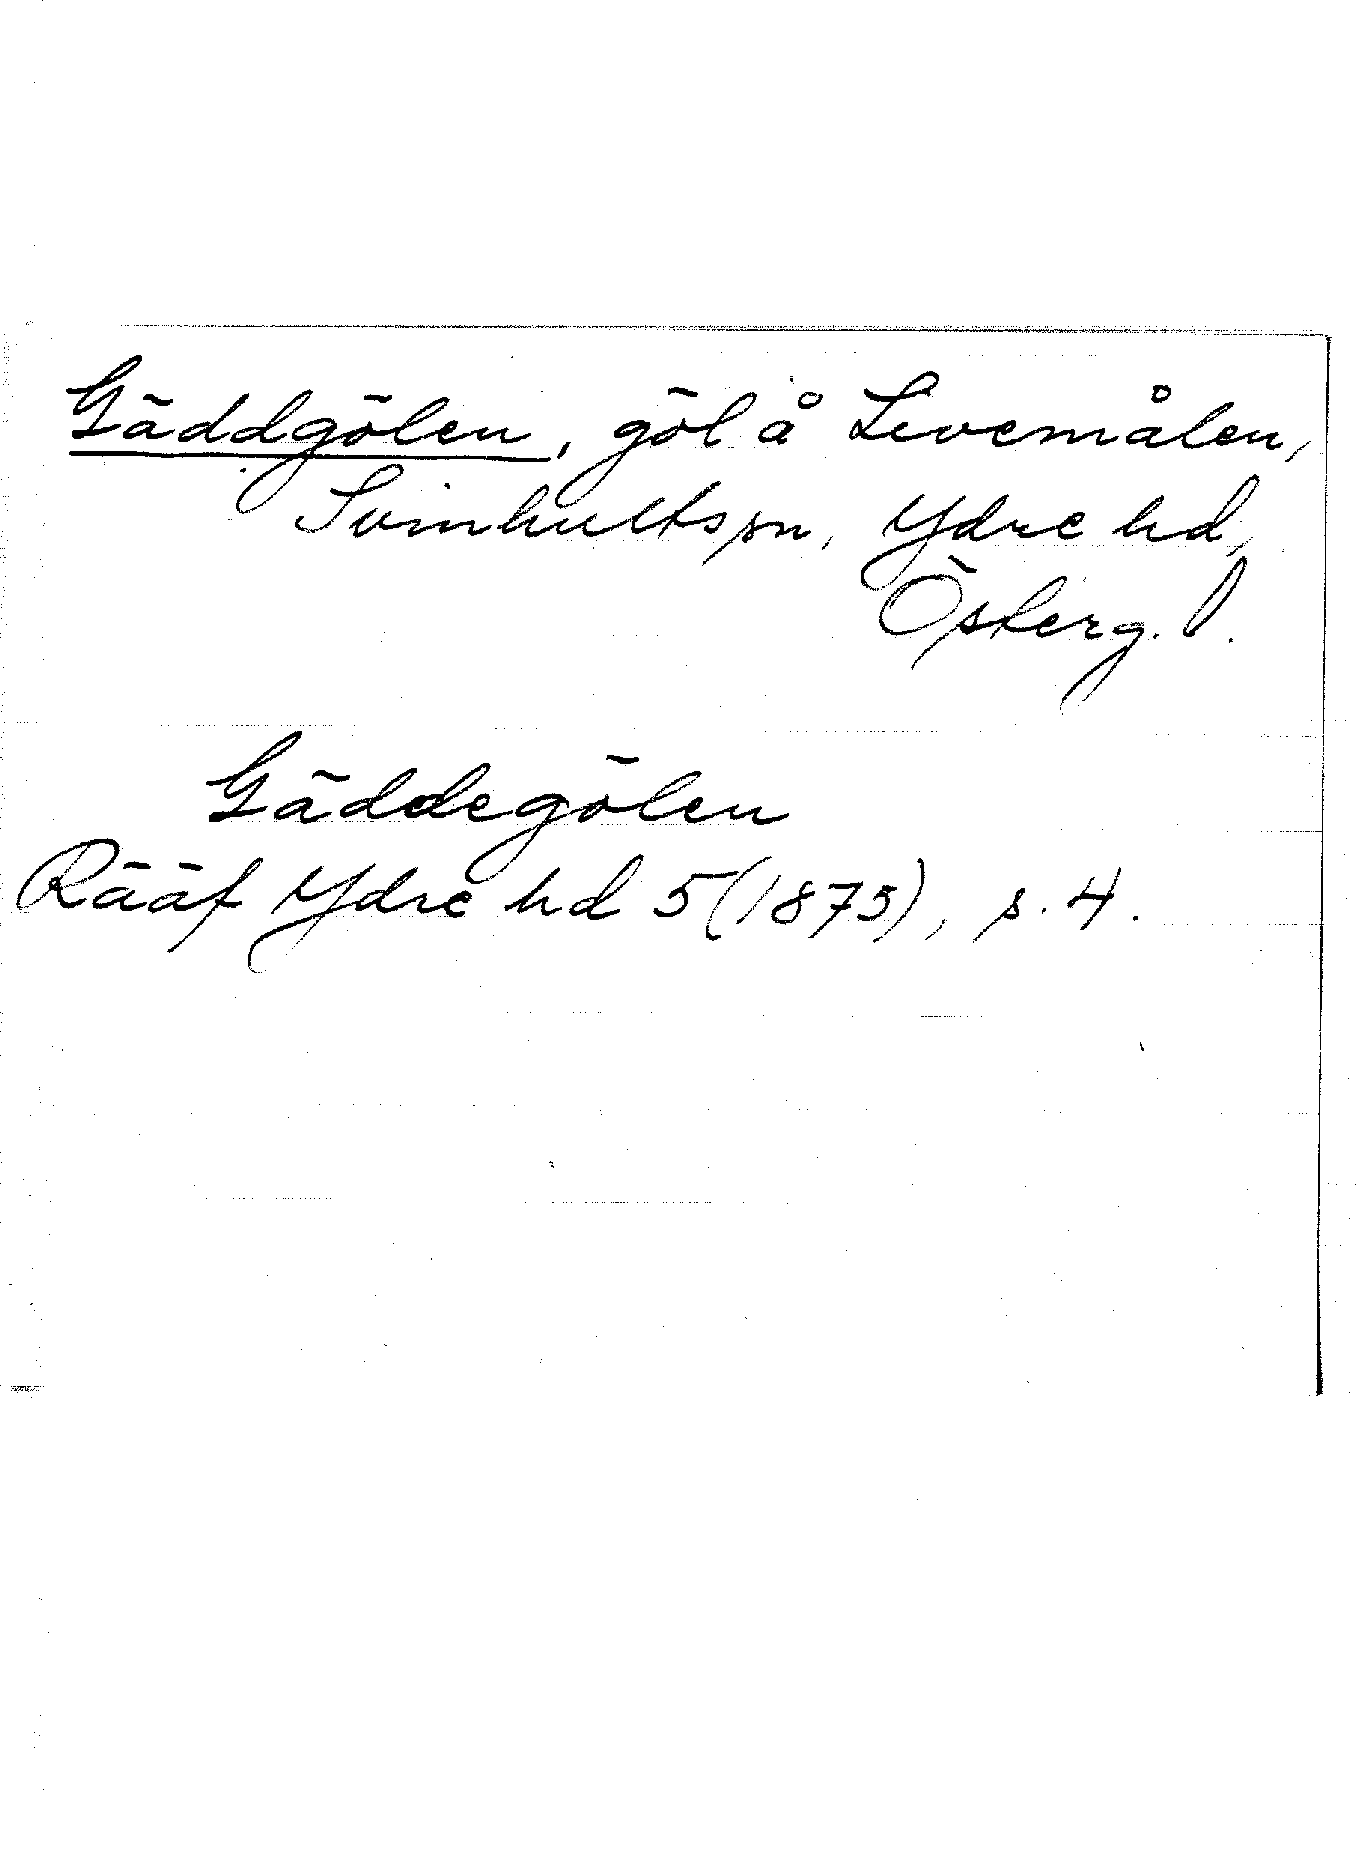 Gäddgölen, göl å Livemålen,
Svinhults sn, Ydre hd,
Österg. l.
Gäddegölen
Rääf Ydre hd 5 (1875), s. 4.